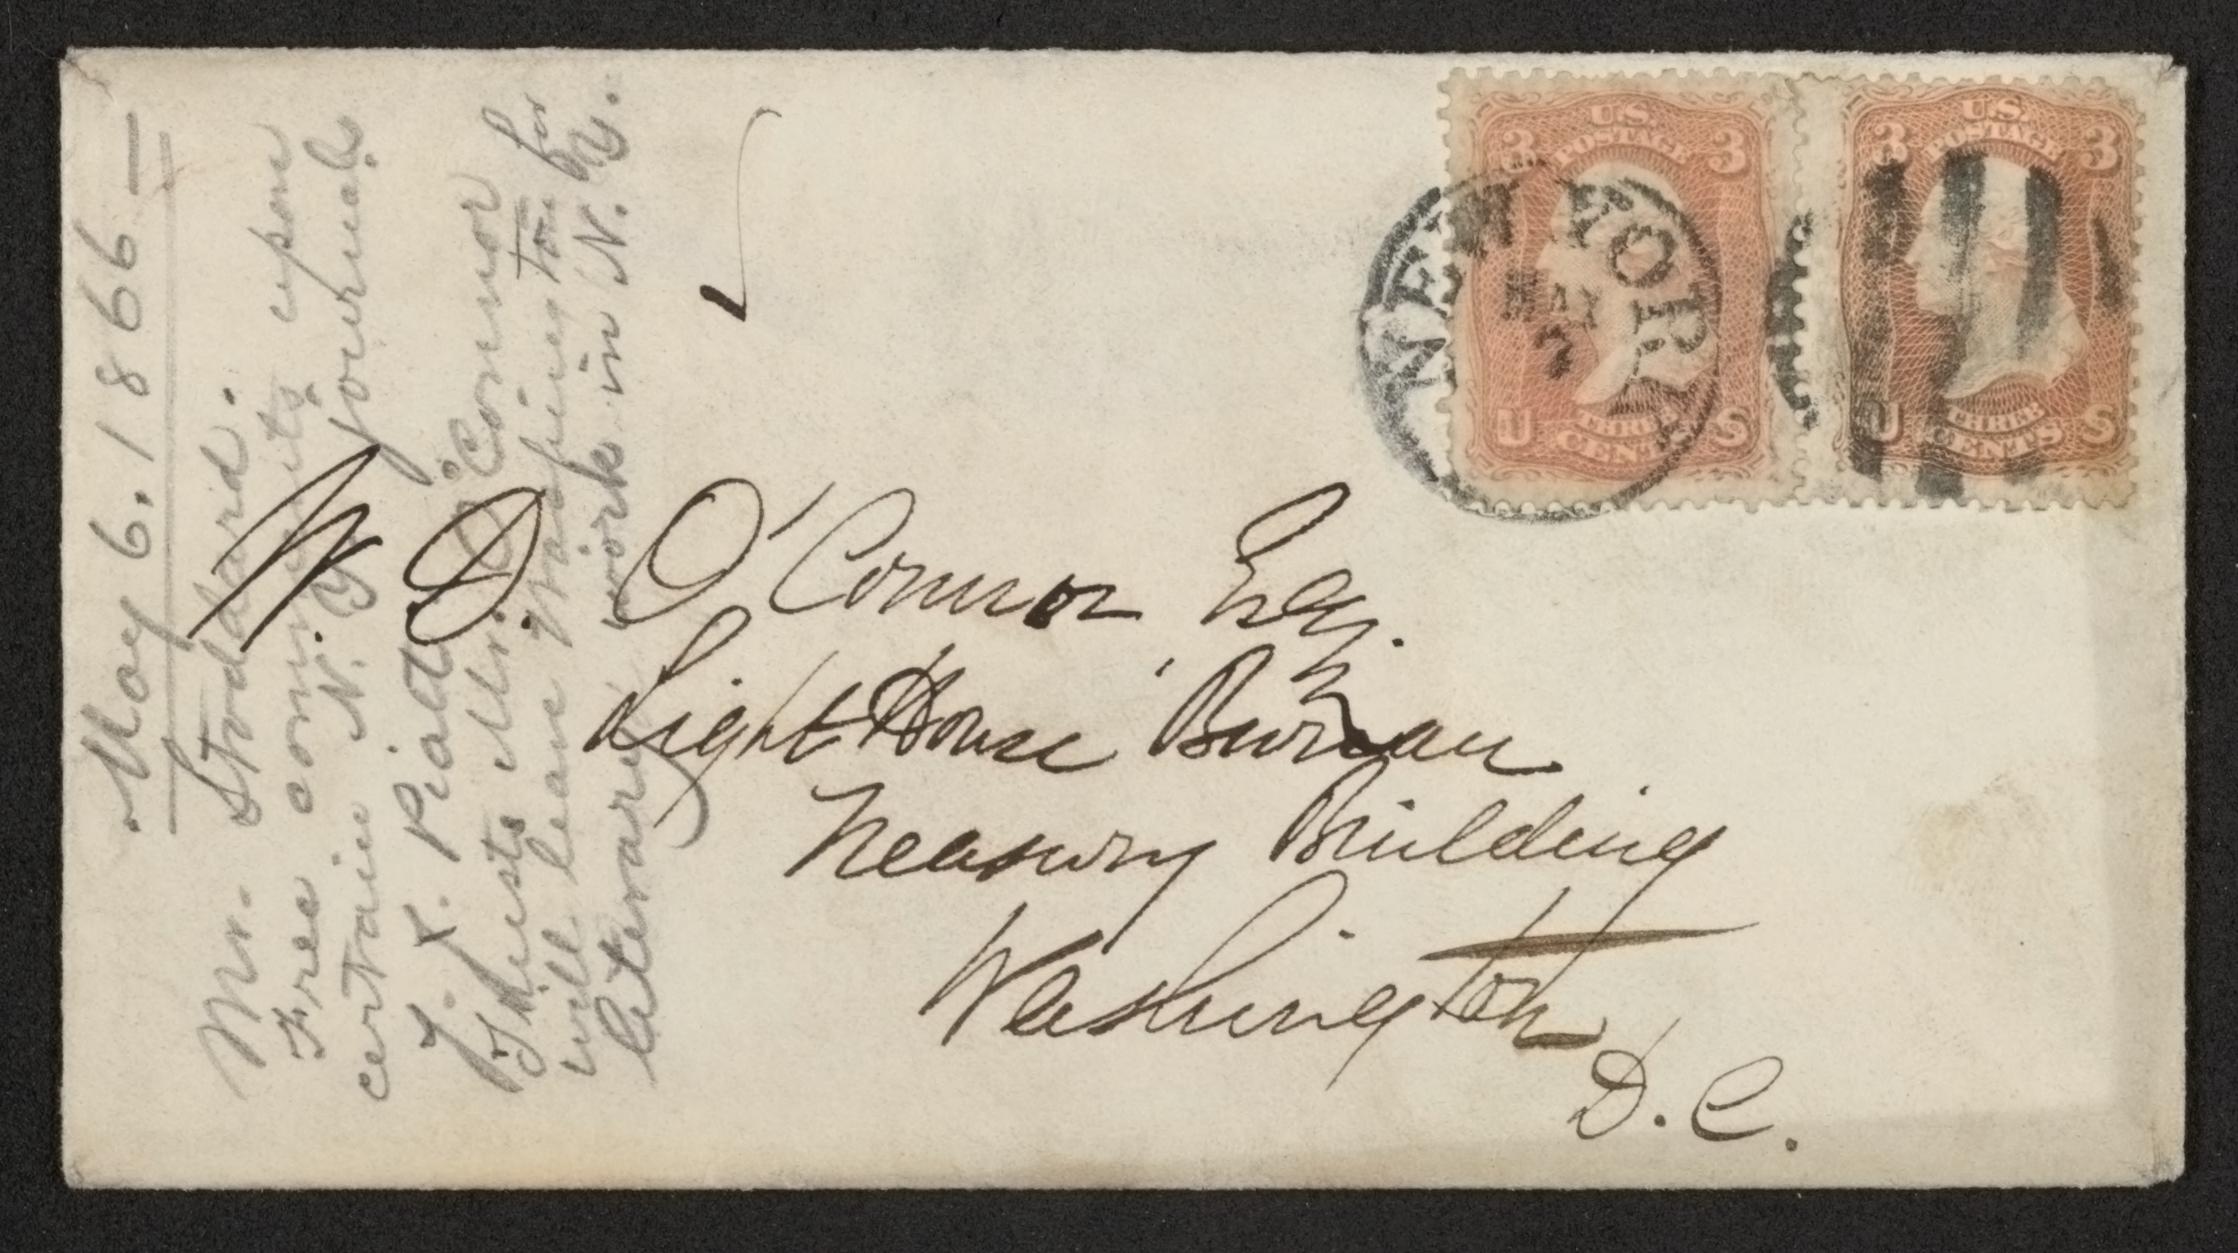 May 6. 1866 —
Mr. Stoddard.
Free comments upon
certain N. Y. journals
J. J. Piatt
Thirsts Mr. O'Connor
will leave Washington for
literary work in N. Y.
W. D. O'Connor Esq.
Light House Bureau
Treasury Building
Washington
D. C.
U.S. POSTAGE
3 3
U S
THREE CENTS
U.S. POSTAGE
3 3
U S
THREE CENTS
NEW YORK
MAY
7